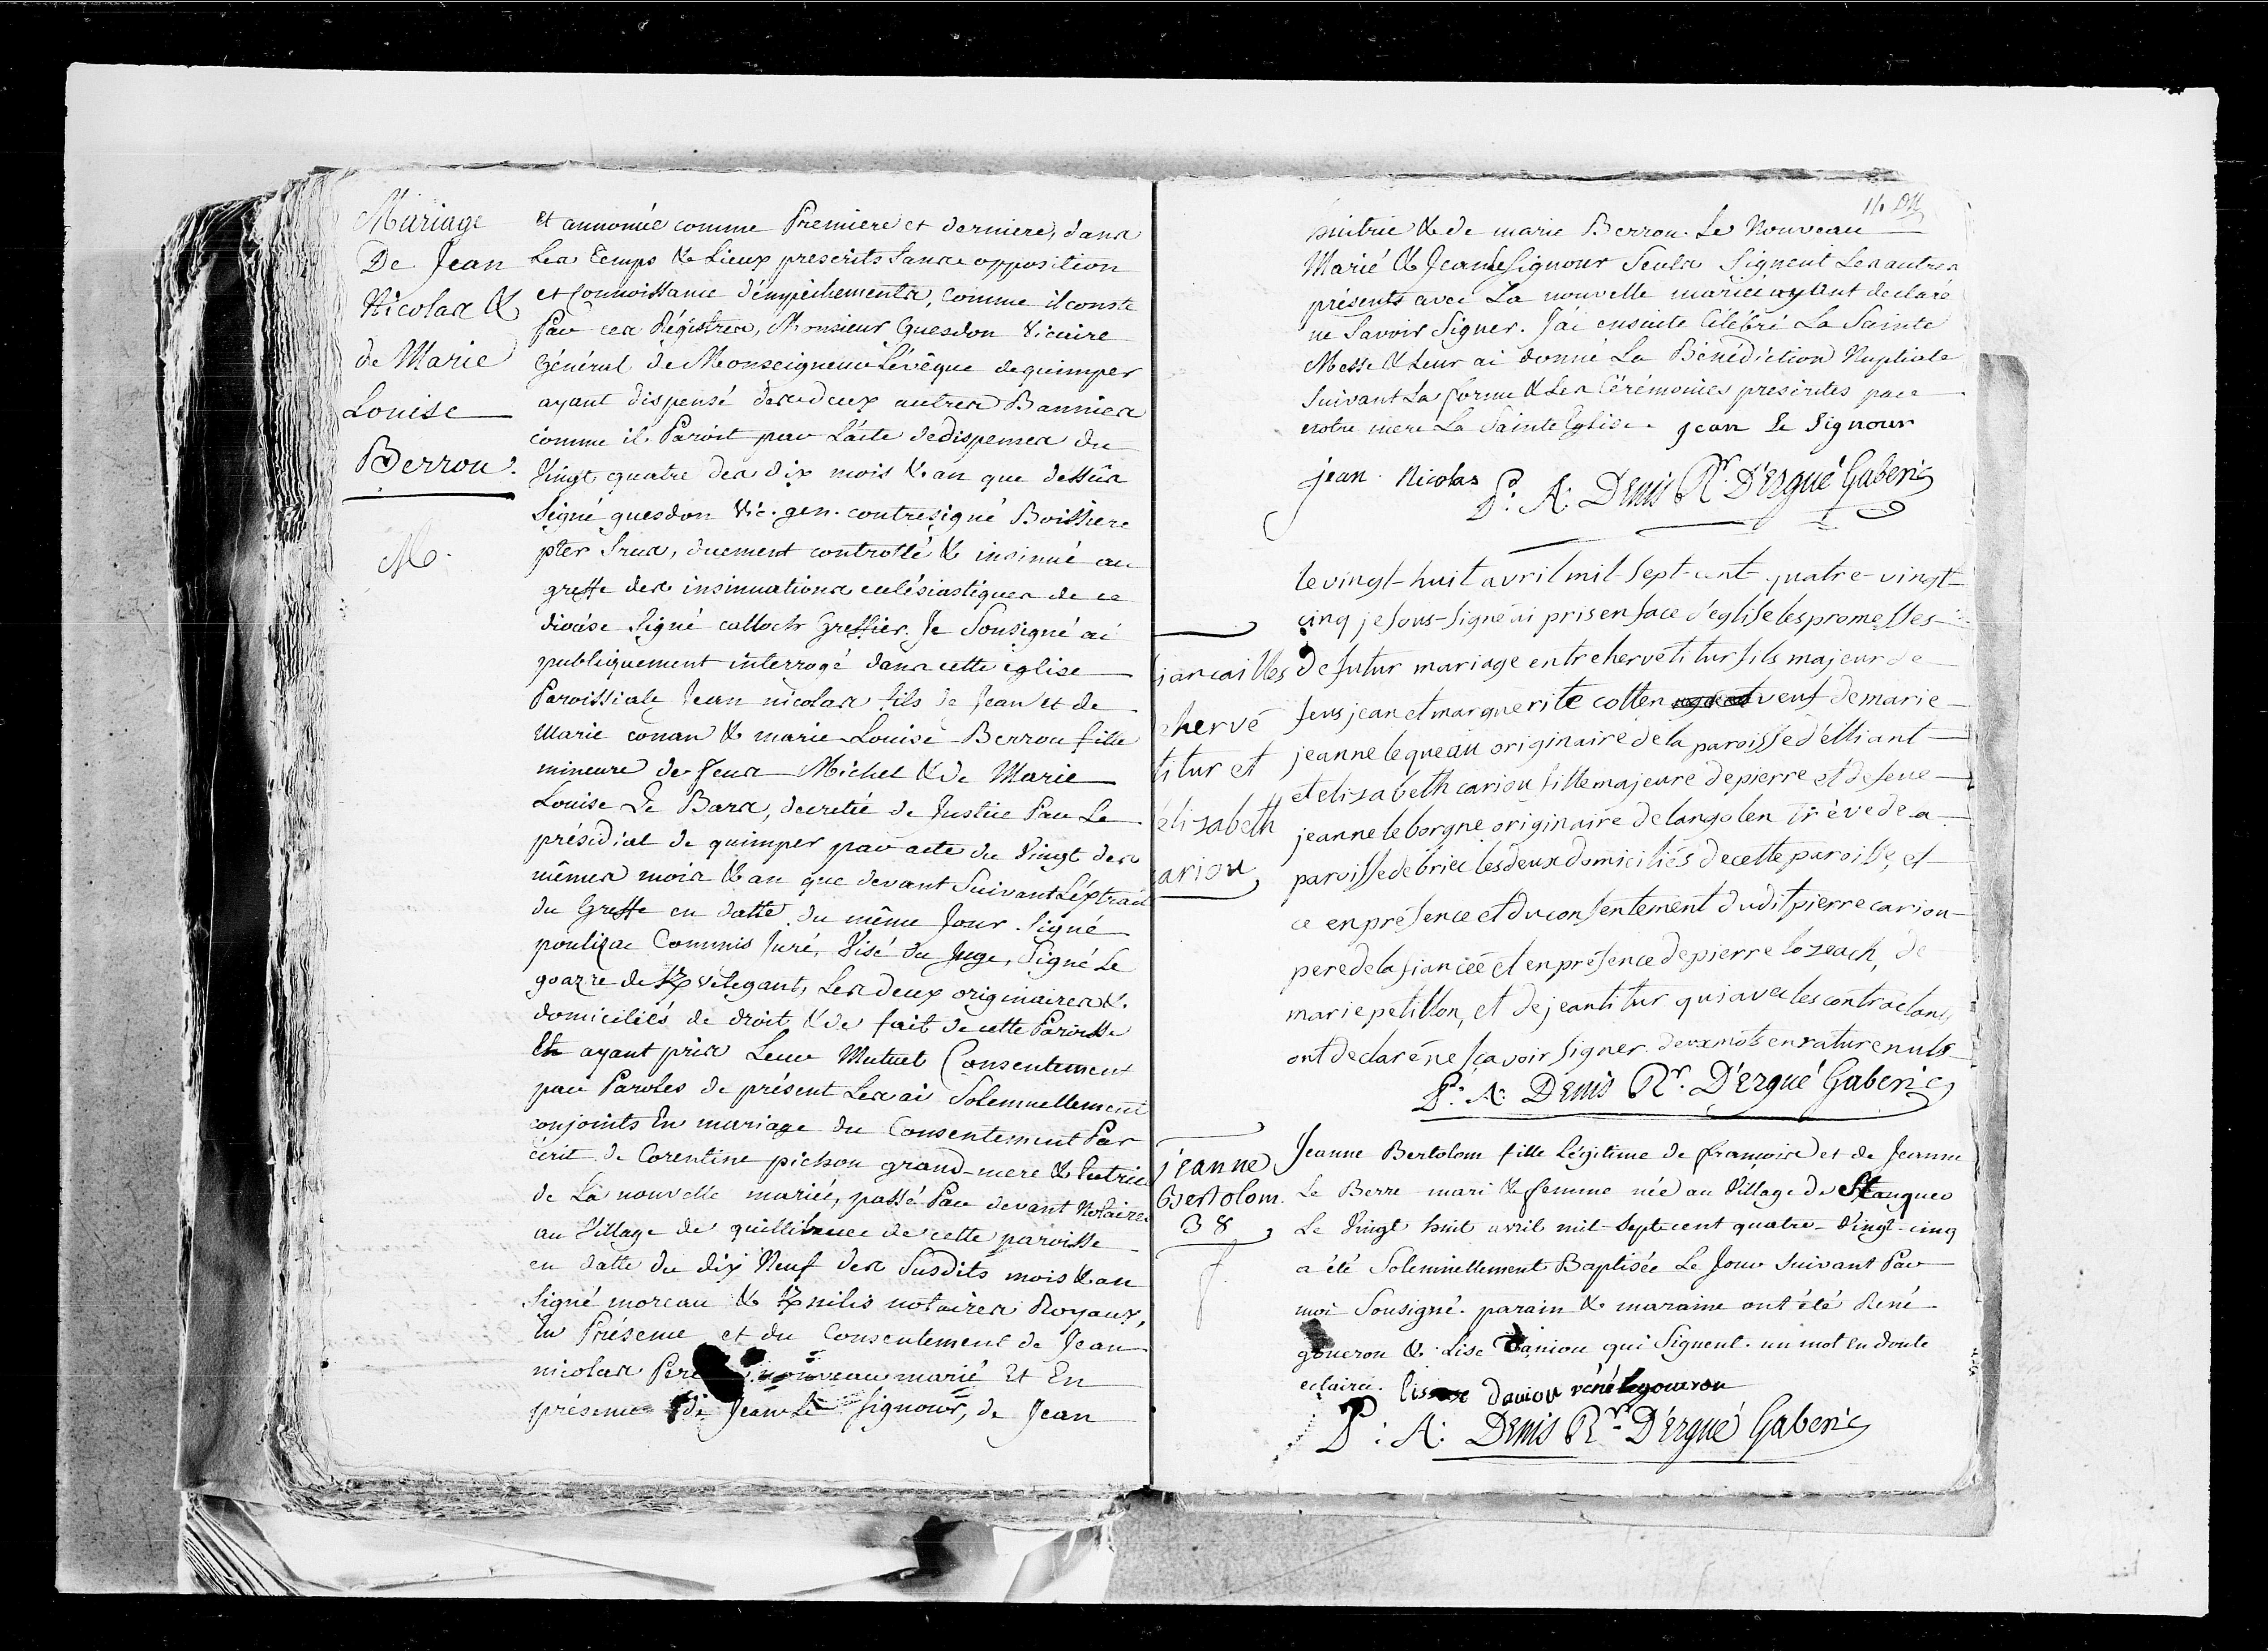 Mariage
De Jean
Nicolas &
de Marie
Louise
Berrou.
M.
et annoncée comme Premiere et derniere, dans
Les Temps & Lieux prescrits Sans opposition
et Connoissance d'empêchements, comme il conste
Par ces Régistres, Monsieur Quesdon Vicaire
Général de Monseigneur L'évêque de quimper
ayant dispensé des deux autres Bannies
comme il Paroit par L'acte de dispenses du
Vingt quatre des dix mois & an que dessus
Signé quesdon Vic. gen. contresigné Boissiere
pter Srus, duement controllé & insinué au
greffe des insinuations eclésiastiques de ce
diocése Signé calloch Greffier. Je Sousigné ai
publiquement interrogé dans cette église
Paroissiale Jean nicolas fils de Jean et de
Marie conan & marie Louise Berrou fille
mineure de feus Michel & de Marie
Louise Le Bars, decretée de Justice Par Le
présidial de quimper par acte du Vingt des
mêmes mois & an que devant Suivant L'éxtrait
du Greffe en datte du même Jour Signé
poulizac Commis Juré, Visé du Juge, Signé Le
goazre de Kvelegant, Les deux originaires &
domiciliés de droit & de fait de cette Paroisse
Et ayant pris Leur Mutuel Consentement
par Paroles de présent Les ai Solemnellement
conjoints En mariage du Consentement Par
écrit de Corentine pichon grand-mere & tutrice
de La nouvelle mariée, passé Par devant Notaires
au Village de quillihouec de cette paroisse
en datte du dix Neuf des Susdits mois & an
Signé moreau & Knilis notaires Royaux,
En Présence et du Consentement de Jean
nicolas Pere nouveau marié Et En
présence de Jean Le Signour, de Jean
11.
huitrie & de marie Berrou. Le Nouveau
Marié & Jean Le Signour Seuls Signent Les autres
présents avec La nouvelle mariée ayant declaré
ne Savoir Signer. J'ai ensuite Célébré La Sainte
Messe & Leur ai donné La Bénédiction Nuptiale
Suivant La forme & Les Cérémonies prescrites par
notre mere La Sainte Eglise. jean Le Signour
jean Nicolas P. A. Denis Rr. D'Ergué Gaberic
le vingt-huit avril mil-sept-cent-quatre-vingt-
cinq je sous-signé ai pris en face d'eglise les promesses
fiancailles de futur mariage entre hervé titur fils majeur de
hervé feus jean et marguerite cotten veuf de marie
titur et jeanne le queau originaire de la paroisse d'elliant
et elizabeth cariou fille majeure de pierre et de feue
élizabeth jeanne le borgne originaire de langolen trève de a
cariou paroisse de briec les deux domiciliés de cette paroisse, et
ce en présence et du consentement du dit pierre cariou
pere de la fiancée et en présence de pierre lozeach, de
marie petillon, et de jean titur qui avec les contractans,
ont declaré ne sçavoir signer. deux mots en rature nuls
P. A. Denis Rr. D'Ergué Gaberic
jeanne
Bertolom.
38
Jeanne Bertolom fille Légitime de françois et de Jeanne
Le Berre mari & femme née au Village de Stanqueo
Le Vingt huit avril mil-Sept cent quatre-Vingt-cinq
a été Solemnellement Baptisée Le Jour Suivant Par
moi Sousigné. parain & maraine ont été René
goueron & Lise Daniou qui Signent. un mot En doute
eclairci. Daniou réné le gouerou
P. A. Denis Rr. D'Ergué Gaberic